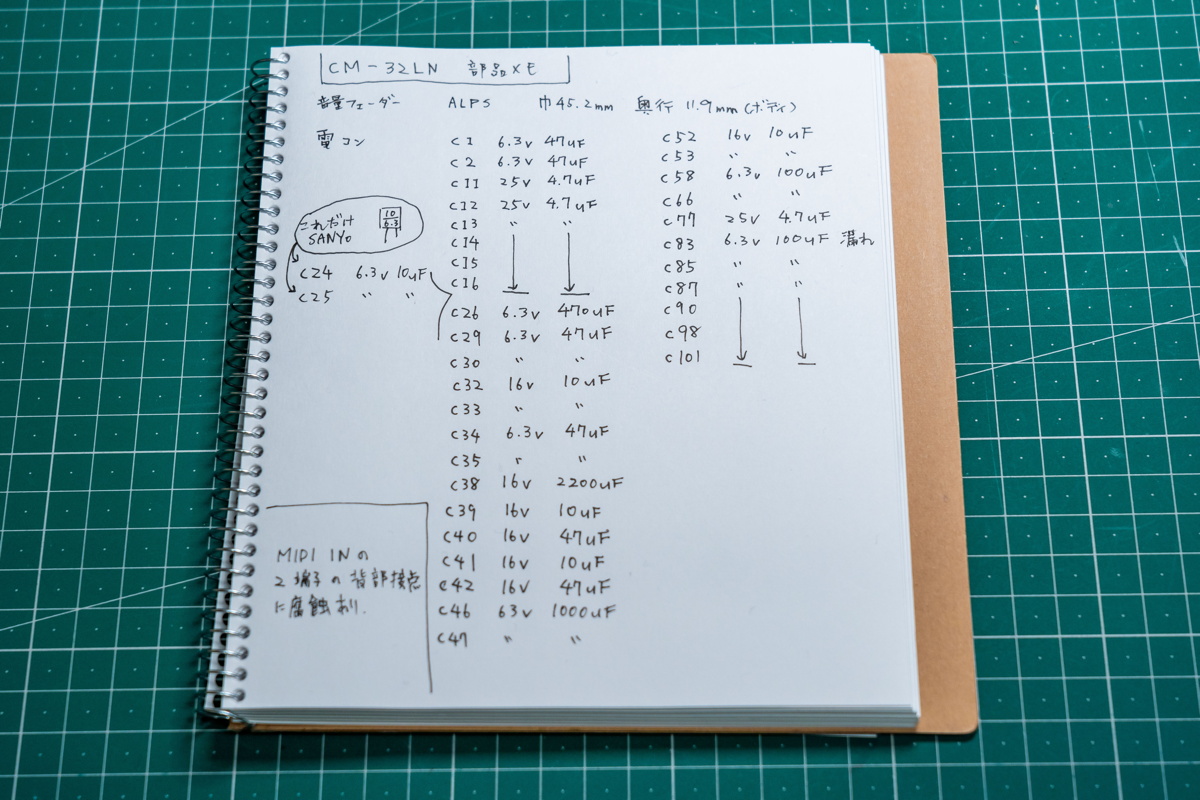 CM-32LN 部品メモ
音量フェーダー ALPS 巾45.2mm 奥行 11.9mm (ボディ)
電コン
C1 6.3v 47uF
C2 6.3v 47uF
C11 25v 4.7uF
C12 25v 4.7uF
C13 〃 〃
C14
C15
C16
これだけ
SANYO
10
6.3
C24 6.3v 10uF
C25 〃 〃
C26 6.3v 470uF
C29 6.3v 47uF
C30 〃 〃
C32 16v 10uF
C33 〃 〃
C34 6.3v 47uF
C35 〃 〃
C38 16v 2200uF
C39 16v 10uF
C40 16v 47uF
C41 16v 10uF
C42 16v 47uF
C46 63v 1000uF
C47 〃 〃
C52 16v 10uF
C53 〃 〃
C58 6.3v 100uF
C66 〃 〃
C77 25v 4.7uF
C83 6.3v 100uF 漏れ
C85 〃 〃
C87 〃 〃
C90
C98
C101
MIDI INの
2端子の背部接点
に腐蝕あり.